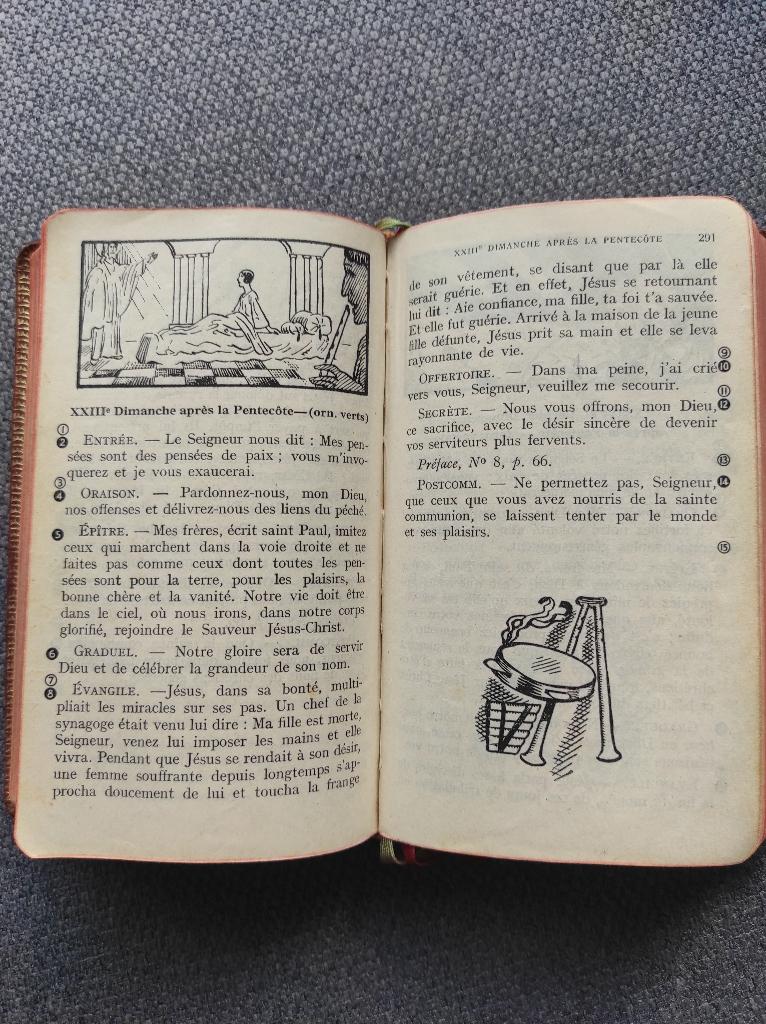 XXIIIe Dimanche après la Pentecôte—(orn. verts)
①
❷ ENTRÉE. — Le Seigneur nous dit : Mes pen-
sées sont des pensées de paix ; vous m'invo-
querez et je vous exaucerai.
③
❹ ORAISON. — Pardonnez-nous, mon Dieu,
nos offenses et délivrez-nous des liens du péché.
❺ ÉPÎTRE. — Mes frères, écrit saint Paul, imitez
ceux qui marchent dans la voie droite et ne
faites pas comme ceux dont toutes les pen-
sées sont pour la terre, pour les plaisirs, la
bonne chère et la vanité. Notre vie doit être
dans le ciel, où nous irons, dans notre corps
glorifié, rejoindre le Sauveur Jésus-Christ.
❻ GRADUEL. — Notre gloire sera de servir
Dieu et de célébrer la grandeur de son nom.
⑦
❽ ÉVANGILE. —Jésus, dans sa bonté, multi-
pliait les miracles sur ses pas. Un chef de la
synagogue était venu lui dire : Ma fille est morte,
Seigneur, venez lui imposer les mains et elle
vivra. Pendant que Jésus se rendait à son désir,
une femme souffrante depuis longtemps s'ap-
procha doucement de lui et toucha la frange
XXIIIe DIMANCHE APRÈS LA PENTECÔTE 291
de son vêtement, se disant que par là elle
serait guérie. Et en effet, Jésus se retournant
lui dit : Aie confiance, ma fille, ta foi t'a sauvée.
Et elle fut guérie. Arrivé à la maison de la jeune
fille défunte, Jésus prit sa main et elle se leva
rayonnante de vie. ⑨
OFFERTOIRE. — Dans ma peine, j'ai crié ❿
vers vous, Seigneur, veuillez me secourir.
⑪
SECRÈTE. — Nous vous offrons, mon Dieu, ⓬
ce sacrifice, avec le désir sincère de devenir
vos serviteurs plus fervents.
Préface, No 8, p. 66. ⑬
POSTCOMM. — Ne permettez pas, Seigneur, ⓮
que ceux que vous avez nourris de la sainte
communion, se laissent tenter par le monde
et ses plaisirs.
⑮